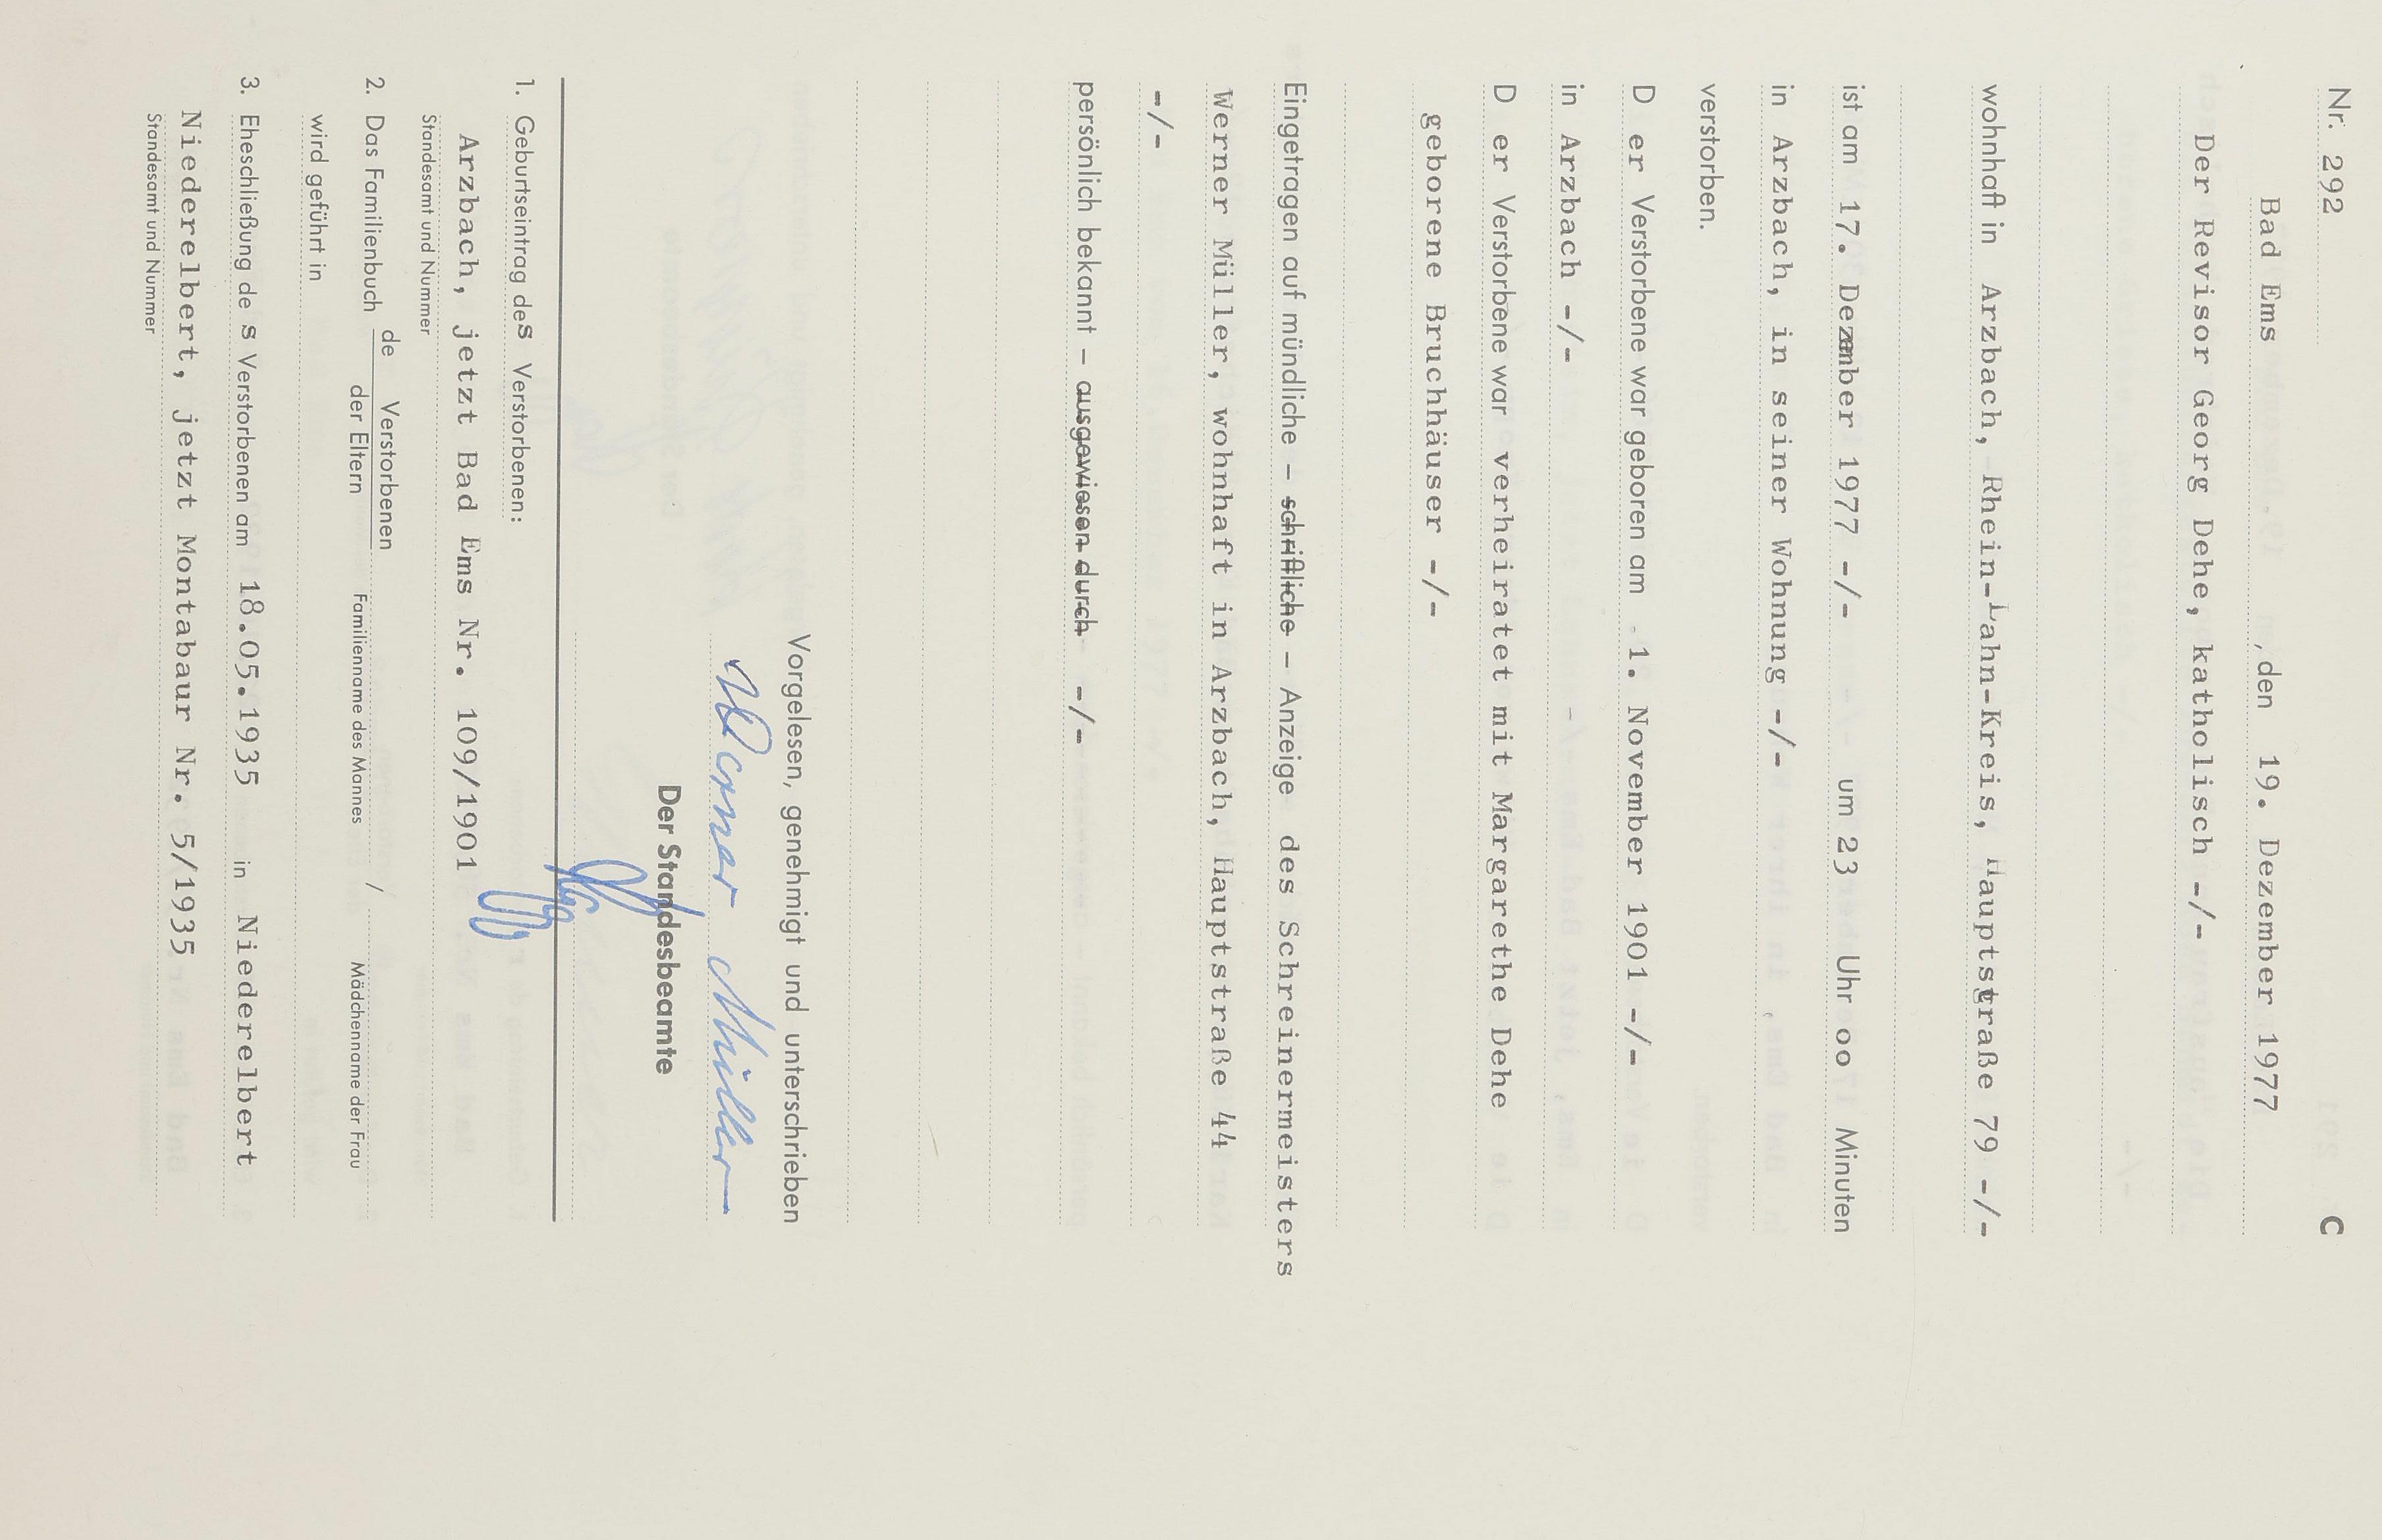 Nr. 292 C
Bad Ems, den 19. Dezember 1977
Der Revisor Georg Dehe, katholisch -/-
wohnhaft in Arzbach, Rhein-Lahn-Kreis, Hauptstraße 79 -/-
ist am 17. Dezember 1977 -/- um 23 Uhr oo Minuten
in Arzbach, in seiner Wohnung -/-
verstorben.
D er Verstorbene war geboren am 1. November 1901 -/-
in Arzbach -/-
D er Verstorbene war verheiratet mit Margarethe Dehe
geborene Bruchhäuser -/-
Eingetragen auf mündliche – schriftliche – Anzeige des Schreinermeisters
Werner Müller, wohnhaft in Arzbach, Hauptstraße 44
-/-
persönlich bekannt – ausgewiesen durch -/-
Vorgelesen, genehmigt und unterschrieben
Werner Müller
Der Standesbeamte
1. Geburtseintrag des Verstorbenen:
Arzbach, jetzt Bad Ems Nr. 109/1901
Standesamt und Nummer
2. Das Familienbuch de Verstorbenen
der Eltern Familienname des Mannes / Mädchenname der Frau
wird geführt in
3. Eheschließung de s Verstorbenen am 18.05.1935 in Niederelbert
Niederelbert, jetzt Montabaur Nr. 5/1935
Standesamt und Nummer